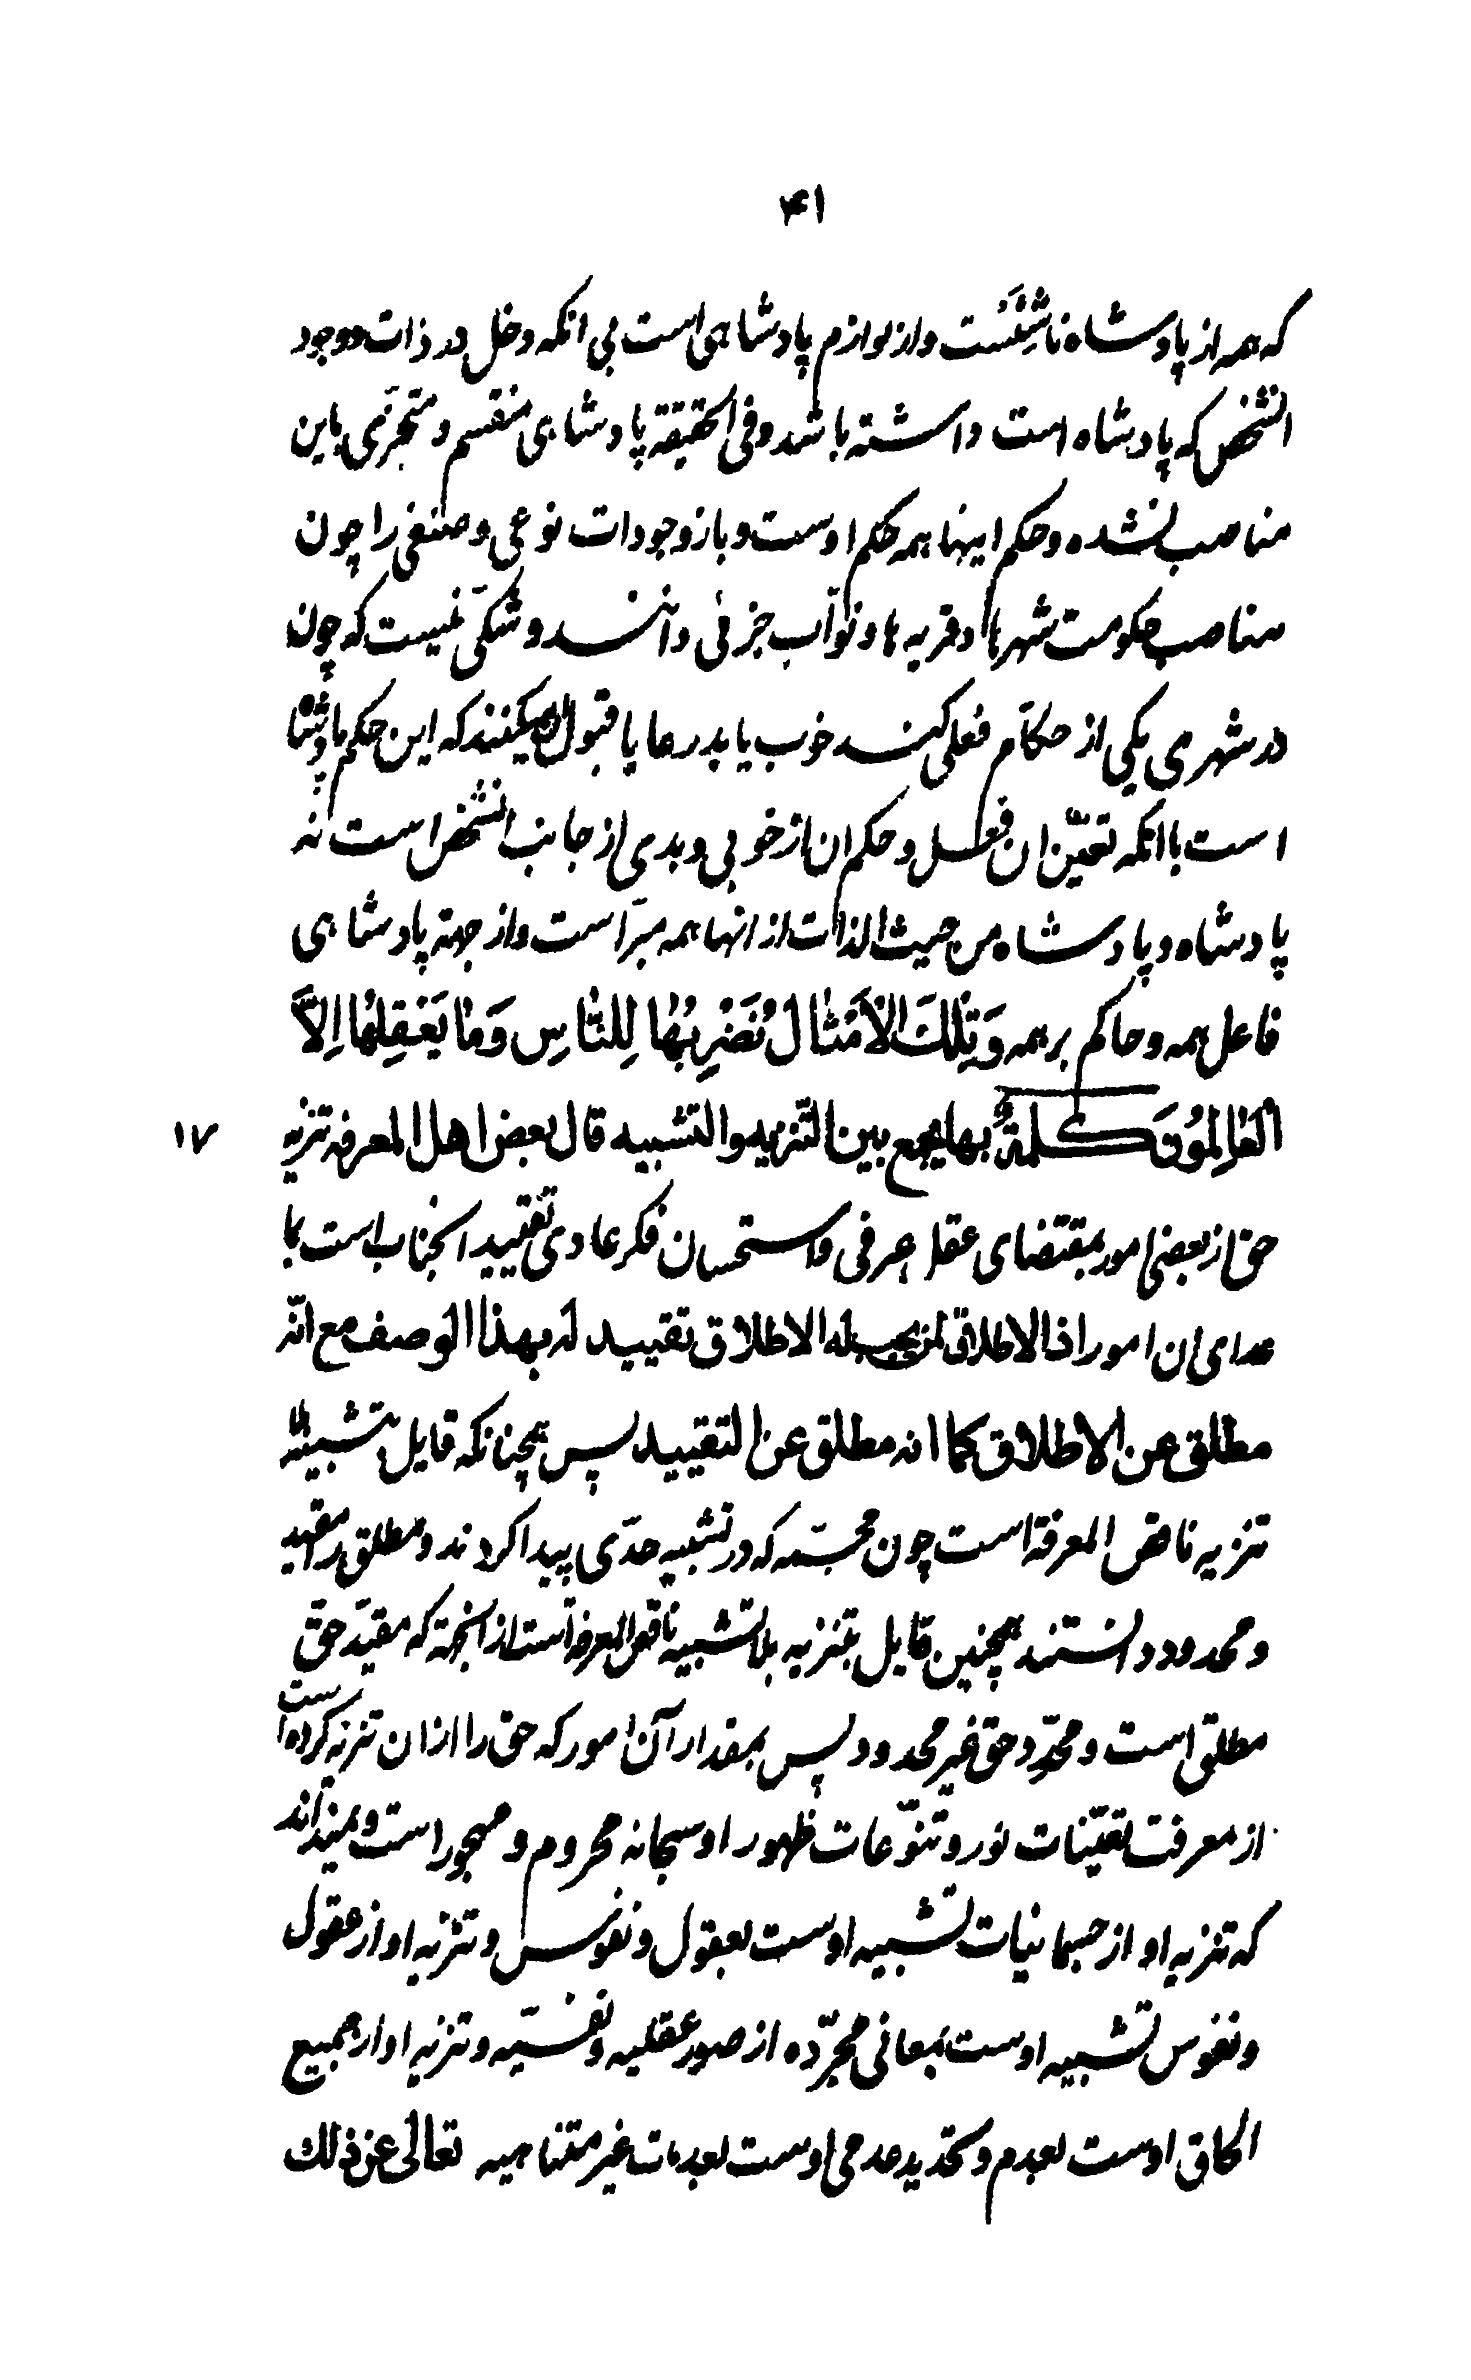 ۴۱
که همه از پادشاه ناشئست و از لوازم پادشاهی است بی انکه دخل در ذات و وجود
انشخص که پادشاه است داشته باشد و فی الحقیقة پادشاهی منقسم و متجزّی باین
مناصب نشده و حکم اینها همه حکم اوست و باز وجودات نوعی و صنفی را چون
مناصب حکومت شهرها و قریه ها و نوّاب جزئی دانند و شکّی نیست که چون
در شهری یکی از حکام فعلی کند خوب یا بد رعایا قبول میکنند که این حکم پادشاه
است با انکه تعیّن ان فعل و حکم ان از خوبی و بدی از جانب انشخص است نه
پادشاه و پادشاه من حیث الذات از انها همه مبرّاست و از جهة پادشاهی
فاعل همه و حاکم بر همه وَتِلْكَ الْأَمْثَالُ نَضْرِبُهَا لِلنَّاسِ وَمَا يَعْقِلُهَا إِلَّا
الْعَالِمُونَ كلمةٌ بها يجمع بين التنزيه والتشبيه قال بعض اهل المعرفه تنزیه
۱۷
حق از بعضی امور بمقتضای عقل عرفی و استحسان فکر عادی تقیید انجناب است بما
عدای ان امور اذ الاطلاق لمن یجب له الاطلاق تقیید له بهذا الوصف مع انّه
مطلق عن الاطلاق کما انه مطلق عن التقیید پس همچنانکه قایل بتشبیه بلا
تنزیه ناقص المعرفة است چون مجسّمه که در تشبیه حدّی پیدا کردند و مطلق را مقید
و محدود دانستند همچنین قایل بتنزیه بلا تشبیه ناقص المعرفة است از انجهة که مقیّد حق
مطلق است و محدّد حق غیر محدود پس بمقدار آن امور که حق را از ان تنزیه کرده است
از معرفت تعیّنات نور و تنوّعات ظهور او سبحانه محروم و مهجور است و نمیداند
که تنزیه او از جسمانیات تشبیه اوست بعقول و نفوس و تنزیه او از عقول
و نفوس تشبیه اوست بمعانی مجرّده از صور عقلیه و نفسیّه و تنزیه او از جمیع
الحاق اوست بعدم و تحدید عدمی اوست بعدمات غیر متناهیه تعالی عن ذلك